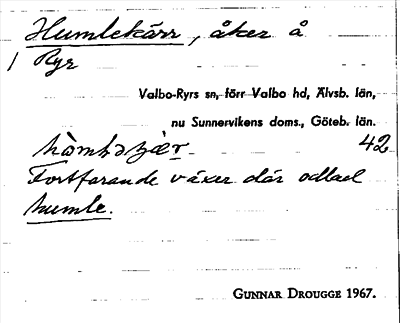 Humlekärr, åker å
1 Ryr
Valbo-Ryrs sn, förr Valbo hd, Älvsb. län,
nu Sunnervikens doms., Göteb. län.
42
Fortfarande växer där odlad
humle.
GUNNAR DROUGGE 1967.